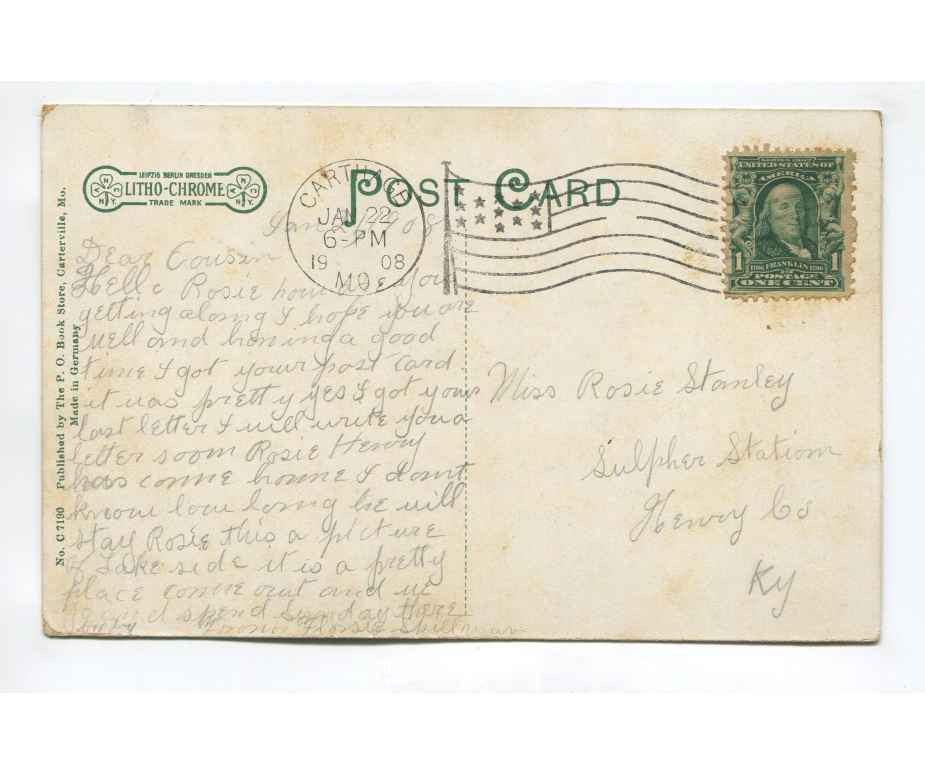 LEIPZIG BERLIN DRESDEN
LITHO-CHROME
TRADE MARK
N N.Y.
N N.Y.
POST CARD
CARTHAGE
JAN 22
6-PM
1908
MO.
UNITED STATES OF
AMERICA
1 FRANKLIN 1
POSTAGE
ONE CENT
No. C 7190 Published by The P. O. Book Store, Carterville, Mo.
Made in Germany
Dear Cousin
Hello Rosie how are you
getting along I hope you are
well and having a good
time I got your post card
it was pretty yes I got your
last letter I will write you a
letter soon Rosie Henry
has come home I dont
know how long he will
stay Rosie this a picture
of Lake side it is a pretty
place come out and we
spend Sunday there
From Flossie
Miss Rosie Stanley
Sulpher Station
Henry Co
Ky